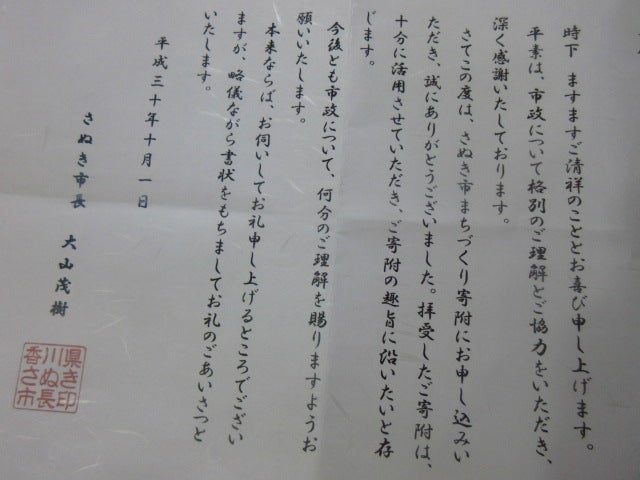 時下　ますますご清祥のこととお喜び申し上げます。
平素は、市政について格別のご理解とご協力をいただき、
深く感謝いたしております。
さてこの度は、さぬき市まちづくり寄附にお申し込みい
ただき、誠にありがとうございました。拝受したご寄附は、
十分に活用させていただき、ご寄附の趣旨に沿いたいと存
じます。
今後とも市政について、何分のご理解を賜りますようお
願いいたします。
本来ならば、お伺いしてお礼申し上げるところでござい
ますが、略儀ながら書状をもちましてお礼のごあいさつと
いたします。
平成三十年十月一日
さぬき市長　大山茂樹
香川県
さぬき
市長印